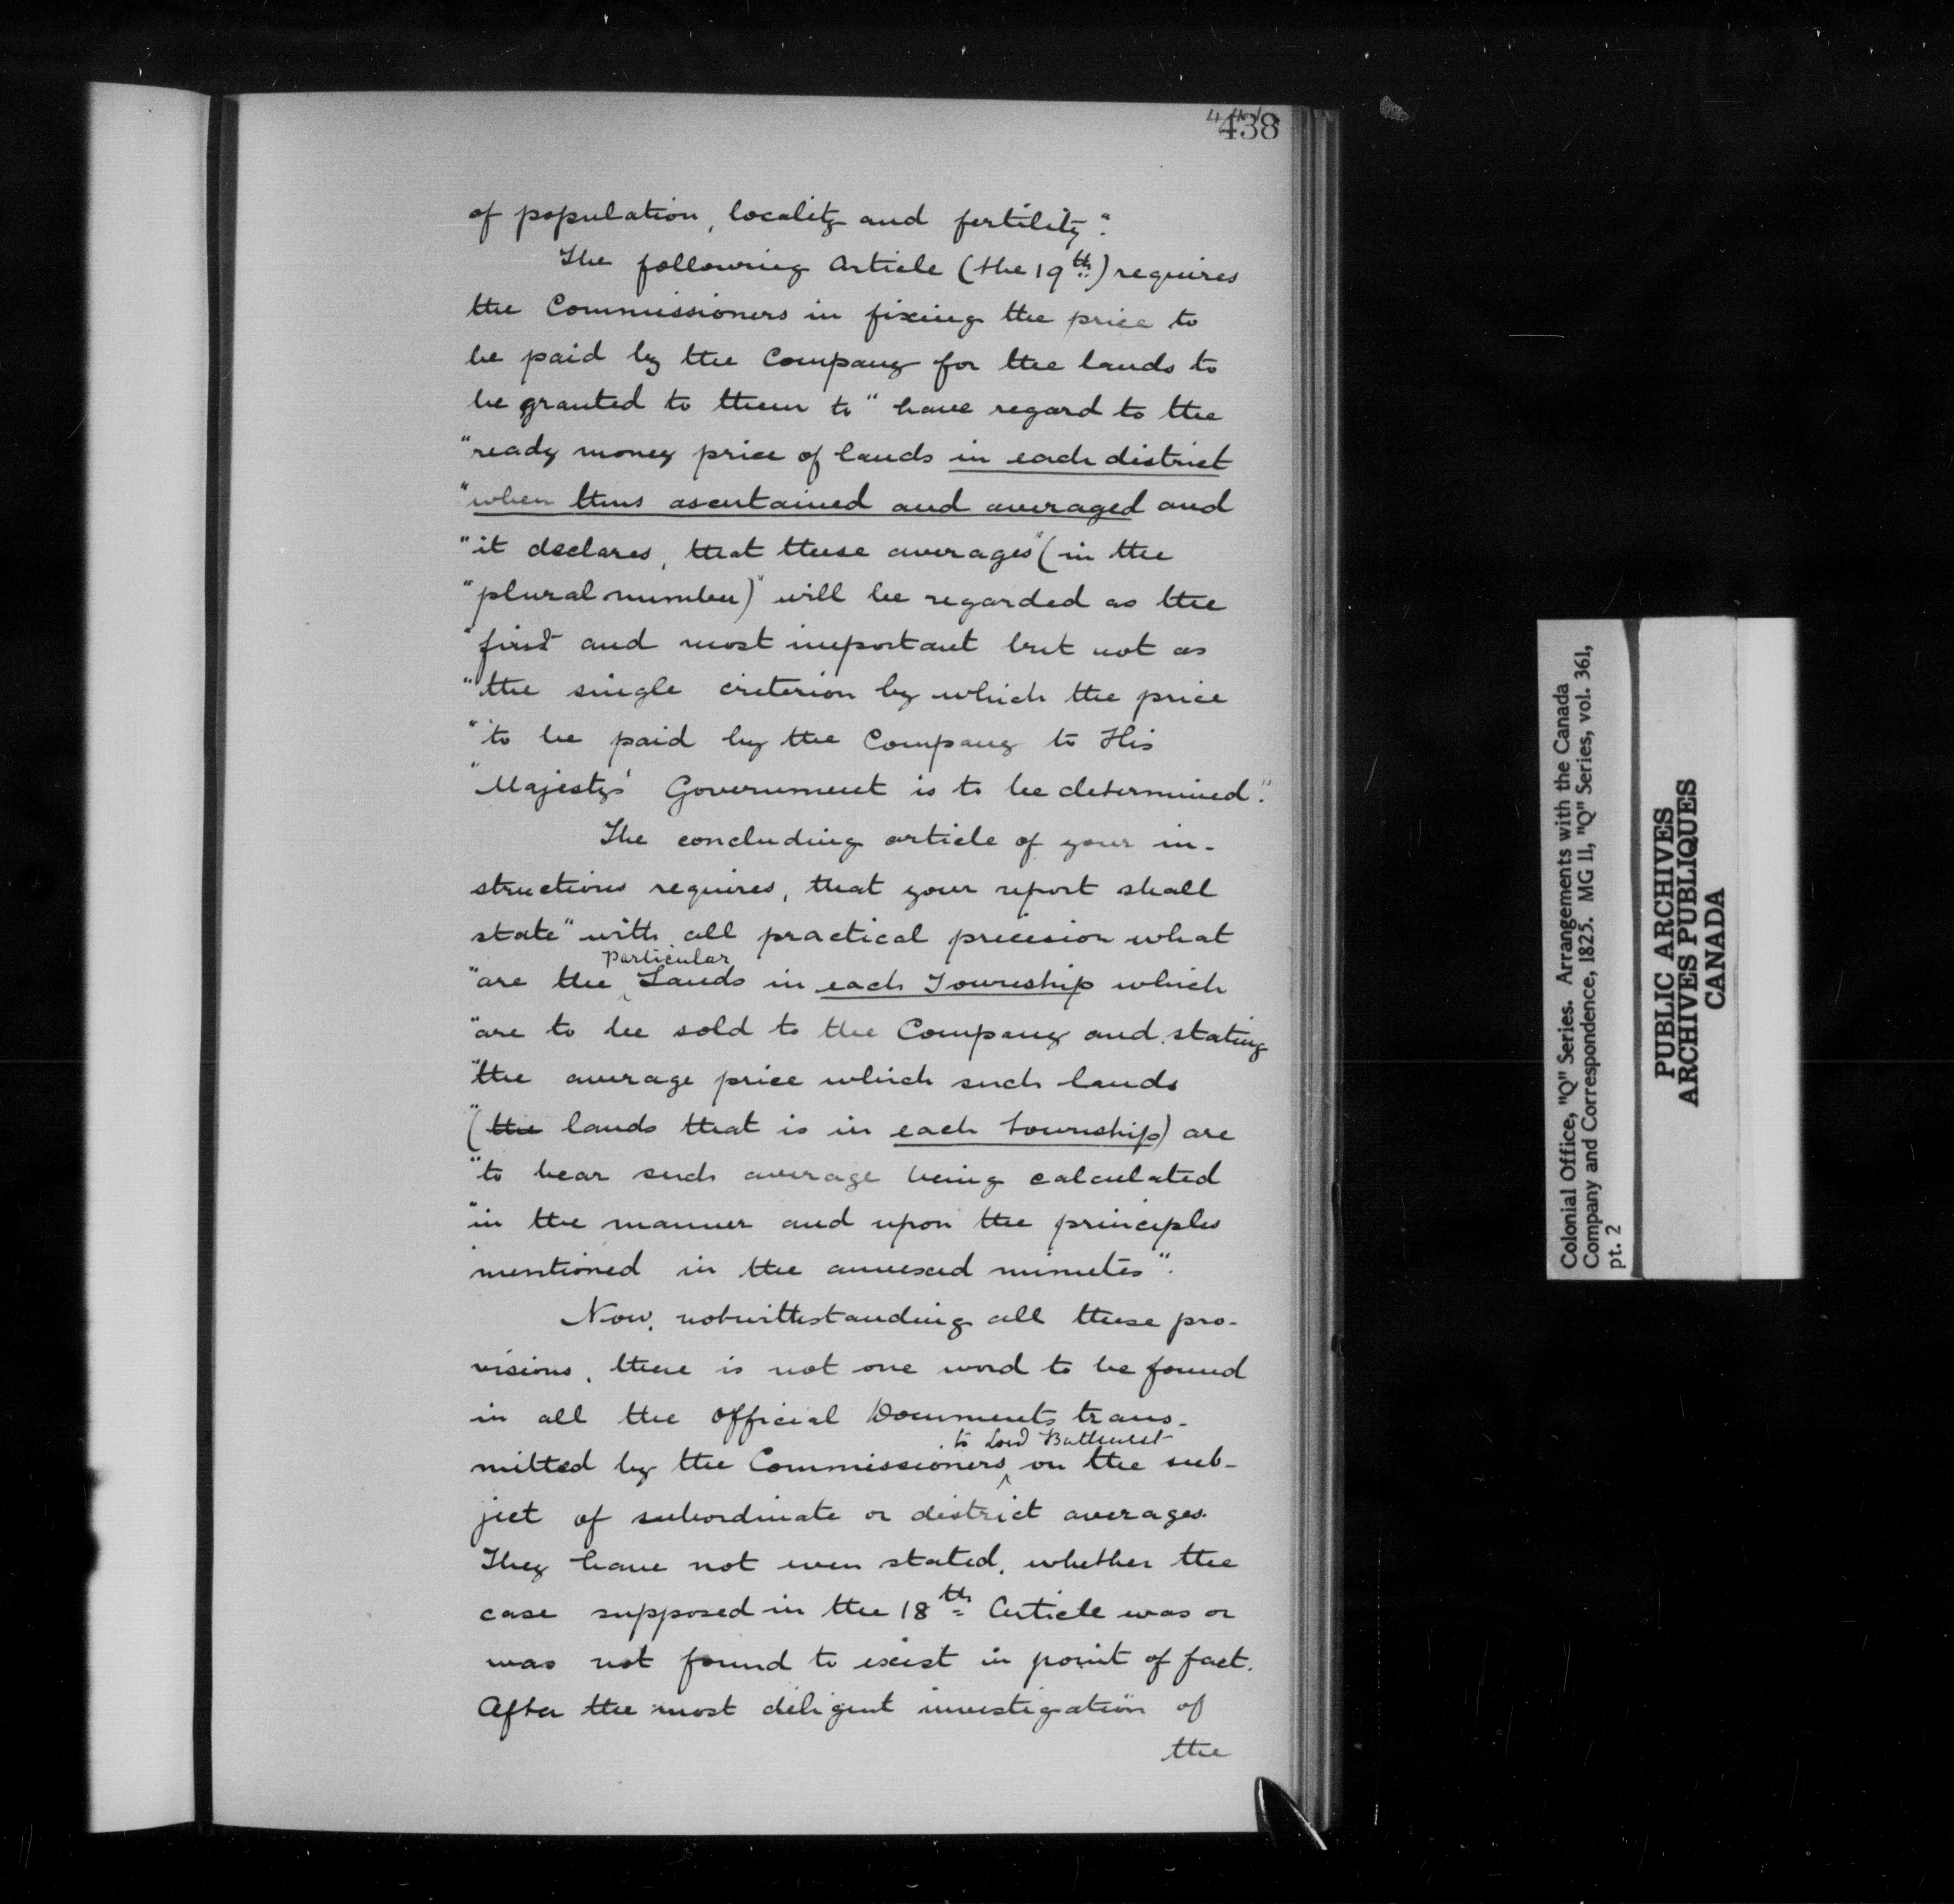 438
of population, locality and fertility".
The following Article (the 19th) requires
the Commissioners in fixing the price to
be paid by the Company for the lands to
be granted to them to "have regard to the
"ready money price of lands in each district
"when thus ascertained and averaged and
"it declares, that these averages" (in the
"plural number)" will be regarded as the
"first and most important but not as
"the single criterion by which the price
"to be paid by the Company to His
"Majesty's Government is to be determined."
The concluding article of your in-
structions requires, that your report shall
state "with all practical precision what
particular
"are the Lands in each Township which
"are to be sold to the Company and stating
"the average price which such lands
"(the lands that is in each township) are
"to bear such average being calculated
"in the manner and upon the principles
mentioned in the annexed minutes".
Now, notwithstanding all these pro-
visions, there is not one word to be found
in all the Official Documents trans-
to Lord Bathurst
mitted by the Commissioners on the sub-
ject of subordinate or district averages.
They have not even stated, whether the
case supposed in the 18th Article was or
was not found to exist in point of fact.
After the most diligent investigation of
the
Colonial Office, "Q" Series. Arrangements with the Canada
Company and Correspondence, 1825. MG 11, "Q" Series, vol. 361,
pt. 2
PUBLIC ARCHIVES
ARCHIVES PUBLIQUES
CANADA